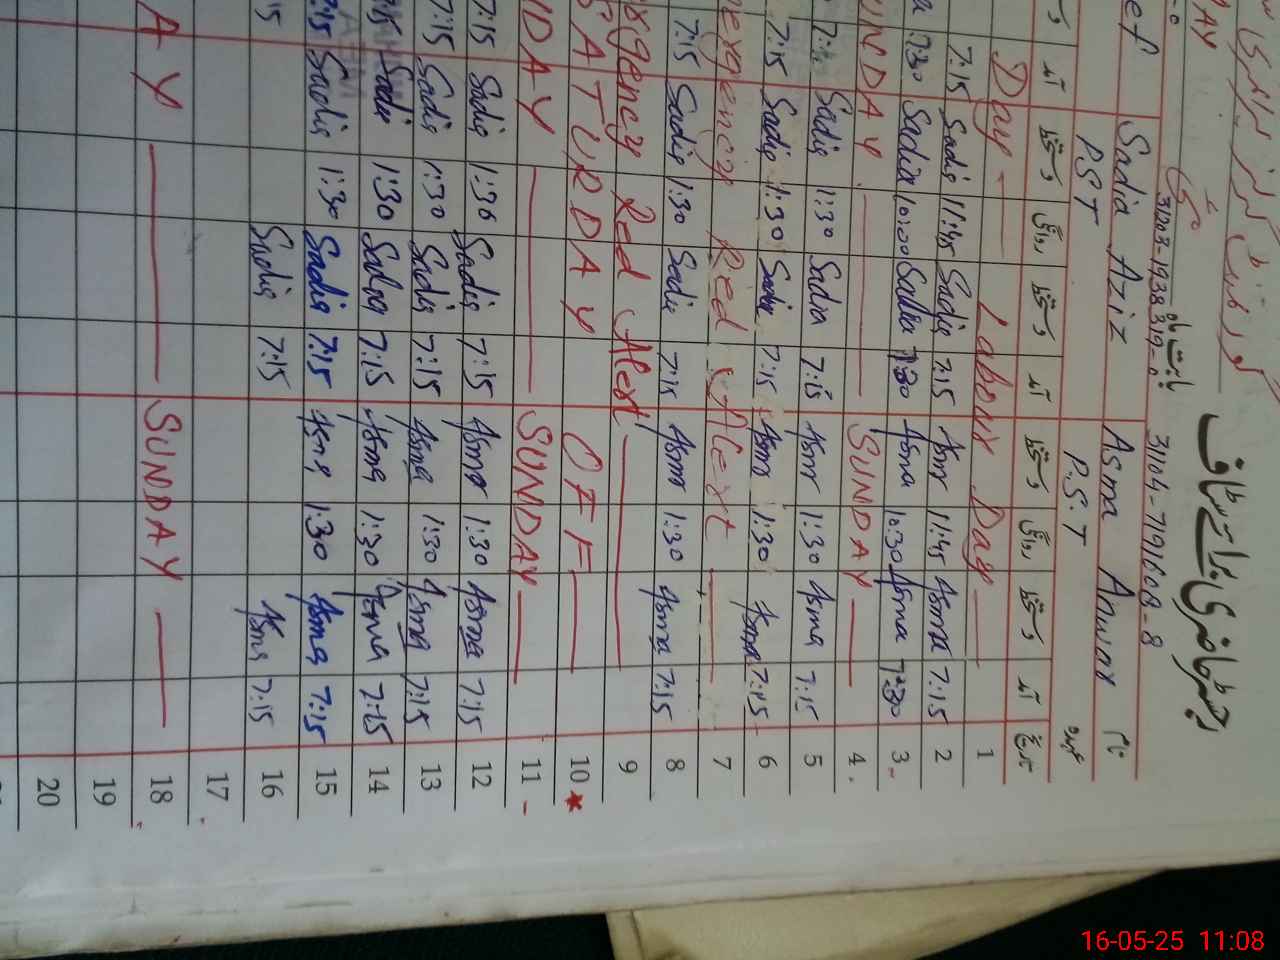 رجسٹر حاضری برائے سٹاف
MAY
31203-1938319-0
31104-7191608-8
Sadia Aziz
Asma Anwar
نام
P.S.T
P.S.T
عہدہ
دستخط
روانگی
دستخط
آمد
دستخط
روانگی
دستخط
آمد
تاریخ
Day Labour Day 1
7:15 Sadia 11:45 Sadia 7:15 Asma 11:45 Asma 7:15 2
7:30 Sadia 10:00 Sadia 7:30 Asma 10:30 Asma 7:30 3
SUNDAY SUNDAY 4
Sadia 1:30 Sadia 7:15 Asma 1:30 Asma 7:15 5
7:15 Sadia 1:30 Sadia 7:15 Asma 1:30 Asma 7:15 6
Emergency Red Alert 7
7:15 Sadia 1:30 Sadia 7:15 Asma 1:30 Asma 7:15 8
Emergency Red Alert 9
SATURDAY OFF 10
SUNDAY SUNDAY 11
7:15 Sadia 1:30 Sadia 7:15 Asma 1:30 Asma 7:15 12
7:15 Sadia 1:30 Sadia 7:15 Asma 1:30 Asma 7:15 13
Sadia 1:30 Sadia 7:15 Asma 1:30 Asma 7:15 14
7:15 Sadia 1:30 Sadia 7:15 Asma 1:30 Asma 7:15 15
Sadia 7:15 Asma 7:15 16
17
SUNDAY 18
19
20
16-05-25 11:08